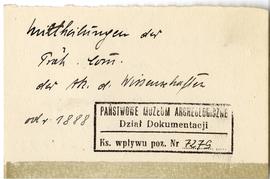 Mittheilungen der
Präh. Com.
der Ak. d. Wissenschaften
od r. 1888
PAŃSTWOWE MUZEUM ARCHEOLOGICZNE
Dział Dokumentacji
Ks. wpływu poz. Nr 7279